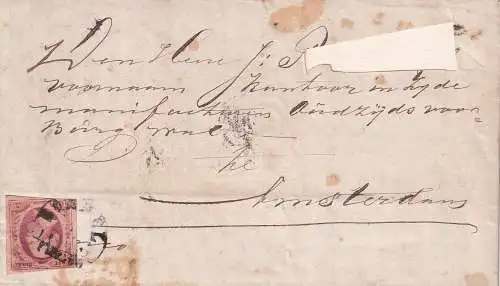 Den Heer J: P
voornaam Kantoor in Zyde
manifacturen Oudzyds voor=
Burg wal
te
Amsterdam